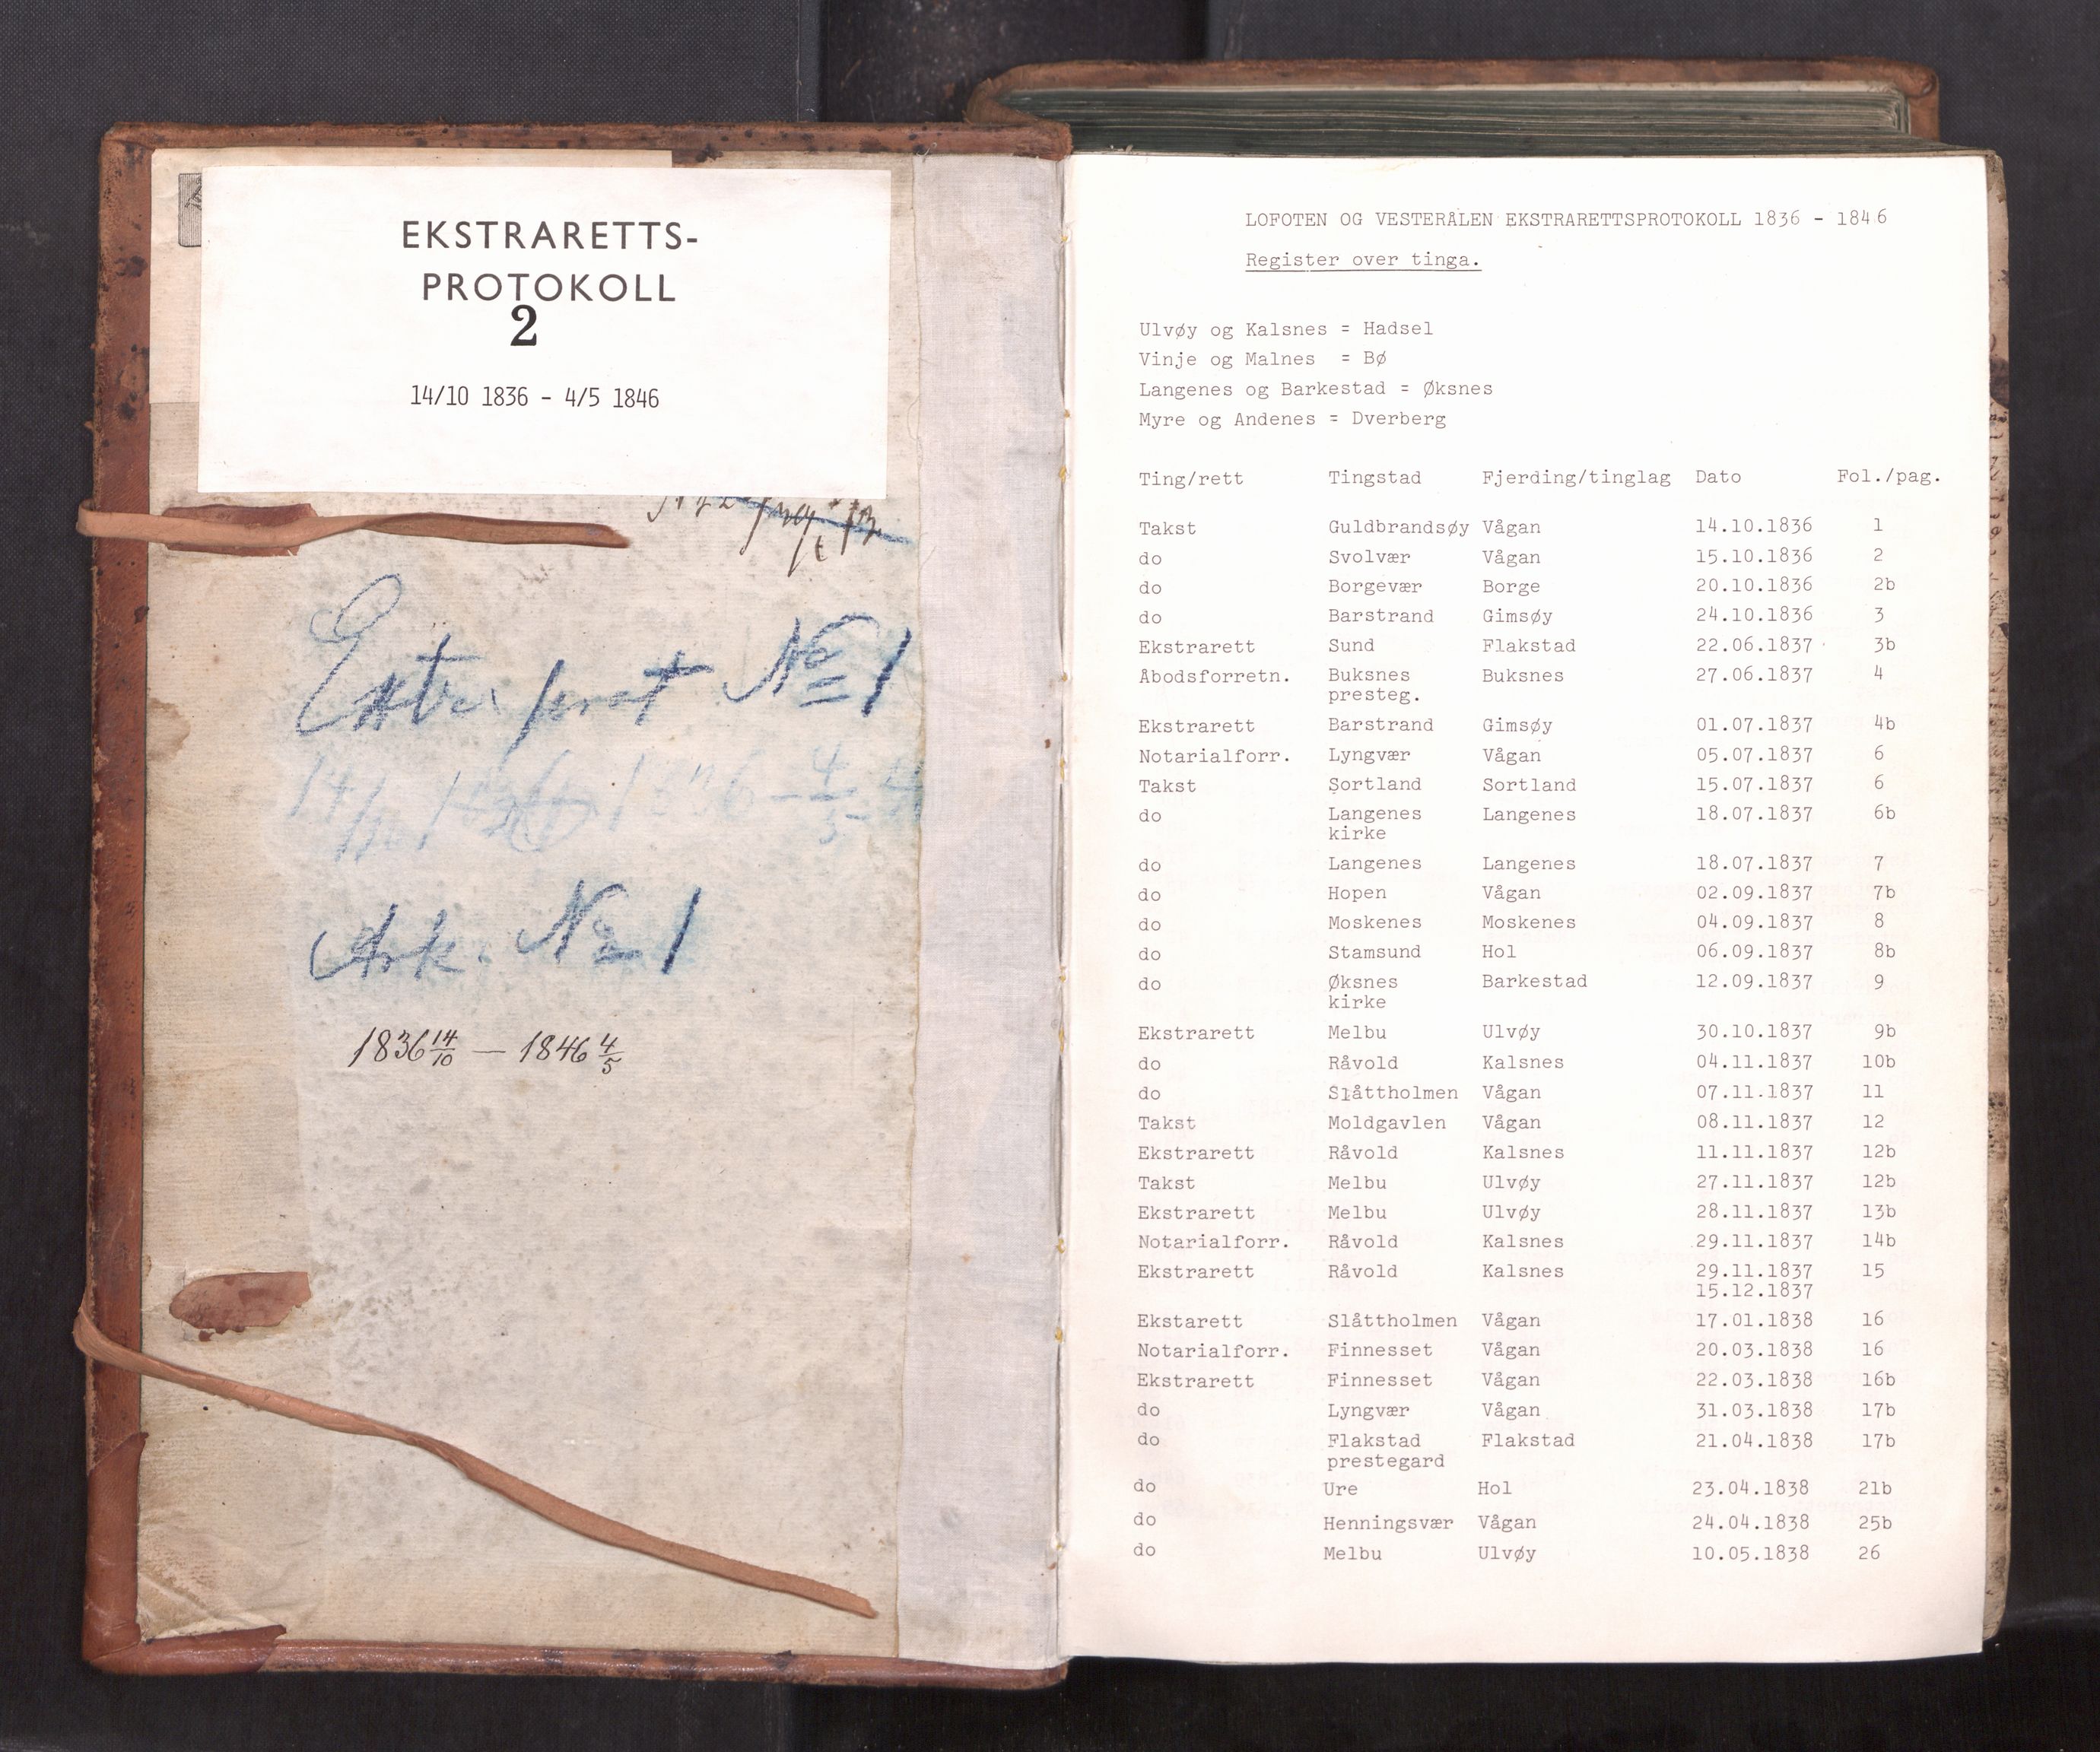 EKSTRARETTS-
PROTOKOLL
2
14/10 1836 - 4/5 1846
Extra prot No 1
14/10 1836 - 4/5
Ark. No 1
1836 14/10 — 1846 4/5
LOFOTEN OG VESTERÅLEN EKSTRARETTSPROTOKOLL 1836 - 1846
Register over tinga.
Ulvøy og Kalsnes = Hadsel
Vinje og Malnes = Bø
Langenes og Barkestad = Øksnes
Myre og Andenes = Dverberg
Ting/rett Tingstad Fjerding/tinglag Dato Fol./pag.
Takst Guldbrandsøy Vågan 14.10.1836 1
do Svolvær Vågan 15.10.1836 2
do Borgevær Borge 20.10.1836 2b
do Barstrand Gimsøy 24.10.1836 3
Ekstrarett Sund Flakstad 22.06.1837 3b
Åbodsforretn. Buksnes Buksnes 27.06.1837 4
presteg.
Ekstrarett Barstrand Gimsøy 01.07.1837 4b
Notarialforr. Lyngvær Vågan 05.07.1837 6
Takst Sortland Sortland 15.07.1837 6
do Langenes Langenes 18.07.1837 6b
kirke
do Langenes Langenes 18.07.1837 7
do Hopen Vågan 02.09.1837 7b
do Moskenes Moskenes 04.09.1837 8
do Stamsund Hol 06.09.1837 8b
do Øksnes Barkestad 12.09.1837 9
kirke
Ekstrarett Melbu Ulvøy 30.10.1837 9b
do Råvold Kalsnes 04.11.1837 10b
do Slåttholmen Vågan 07.11.1837 11
Takst Moldgavlen Vågan 08.11.1837 12
Ekstrarett Råvold Kalsnes 11.11.1837 12b
Takst Melbu Ulvøy 27.11.1837 12b
Ekstrarett Melbu Ulvøy 28.11.1837 13b
Notarialforr. Råvold Kalsnes 29.11.1837 14b
Ekstrarett Råvold Kalsnes 29.11.1837 15
15.12.1837
Ekstarett Slåttholmen Vågan 17.01.1838 16
Notarialforr. Finnesset Vågan 20.03.1838 16
Ekstrarett Finnesset Vågan 22.03.1838 16b
do Lyngvær Vågan 31.03.1838 17b
do Flakstad Flakstad 21.04.1838 17b
prestegard
do Ure Hol 23.04.1838 21b
do Henningsvær Vågan 24.04.1838 25b
do Melbu Ulvøy 10.05.1838 26